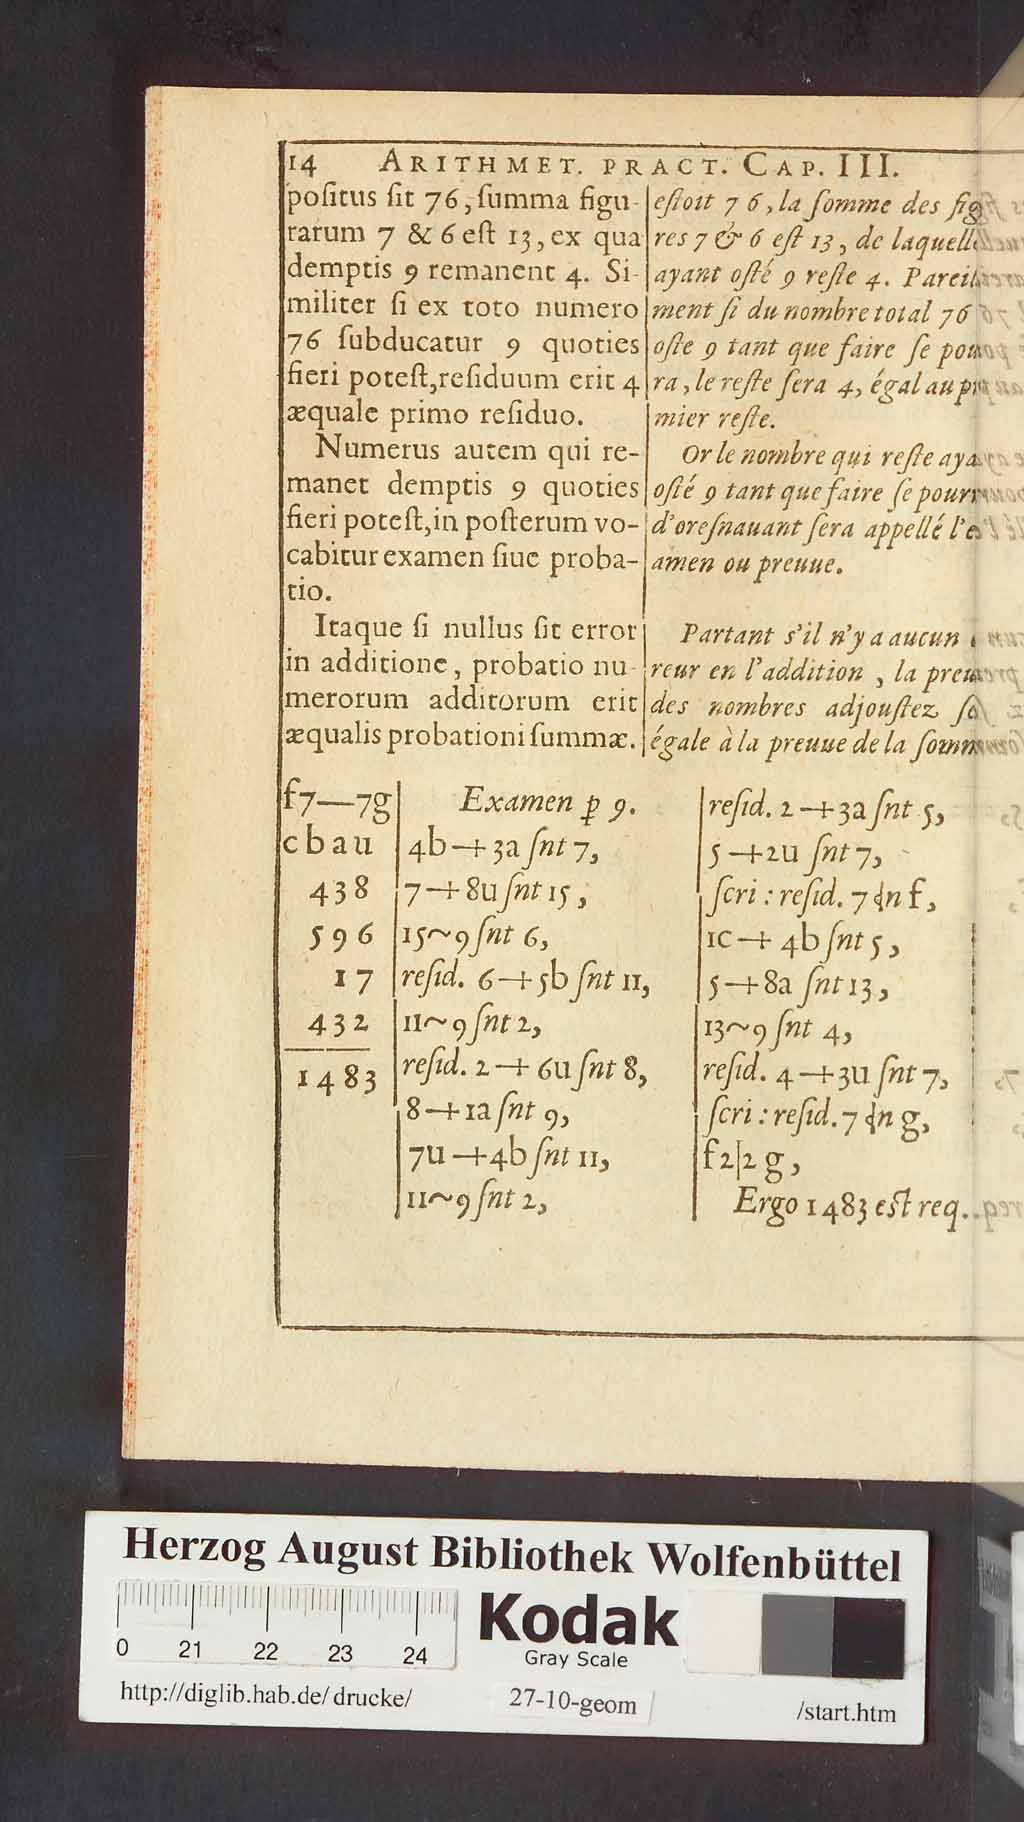 14 ARITHMET. PRACT. CAP. III.
poſitus ſit 76, ſumma figu-
rarum 7 & 6 eſt 13, ex qua
demptis 9 remanent 4. Si-
militer ſi ex toto numero
76 ſubducatur 9 quoties
fieri poteſt, reſiduum erit 4
æquale primo reſiduo.
Numerus autem qui re-
manet demptis 9 quoties
fieri poteſt, in poſterum vo-
cabitur examen ſiue proba-
tio.
Itaque ſi nullus ſit error
in additione, probatio nu-
merorum additorum erit
æqualis probationi ſummæ.
eſtoit 7 6, la ſomme des fig
res 7 & 6 eſt 13, de laquell
ayant oſté 9 reſte 4. Pareil
ment ſi du nombre total 76
oſte 9 tant que faire ſe pou
ra, le reſte ſera 4, égal au pr
mier reſte.
Or le nombre qui reſte aya
oſté 9 tant que faire ſe pourr
d'oreſnauant ſera appellé l'e
amen ou preuue.
Partant s'il n'y a aucun
reur en l'addition, la preu
des nombres adjouſtez ſe
égale à la preuue de la ſomm
f7—7g
c b a u
4 3 8
5 9 6
1 7
4 3 2
1 4 8 3
Examen ꝑ 9.
4b+3a ſnt 7,
7+8u ſnt 15,
15~9 ſnt 6,
reſid. 6+5b ſnt 11,
11~9 ſnt 2,
reſid. 2+6u ſnt 8,
8+1a ſnt 9,
7u+4b ſnt 11,
11~9 ſnt 2,
reſid. 2+3a ſnt 5,
5+2u ſnt 7,
ſcri: reſid. 7 in f,
1c+4b ſnt 5,
5+8a ſnt 13,
13~9 ſnt 4,
reſid. 4+3u ſnt 7,
ſcri: reſid. 7 in g,
f2|2g,
Ergo 1483 eſt req.
Herzog August Bibliothek Wolfenbüttel
0 21 22 23 24
Kodak
Gray Scale
http://diglib.hab.de/drucke/ 27-10-geom /start.htm